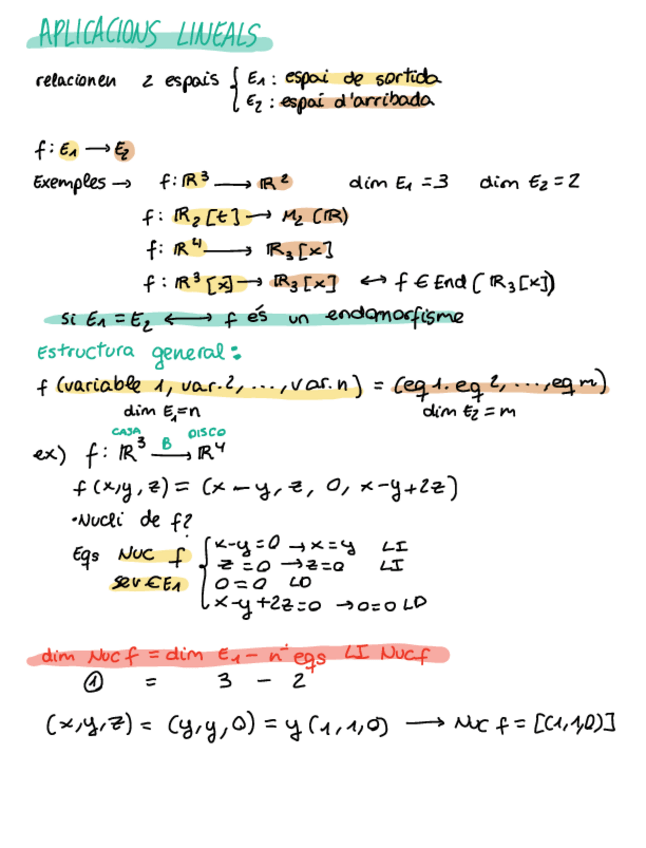 APLICACIONS LINEALS
relacionen 2 espais { E1 : espai de sortida
E2 : espai d'arribada
f: E1 → E2
Exemples → f: ℝ³ → ℝ² dim E1 = 3 dim E2 = 2
f: ℝ2[t] → M2(ℝ)
f: ℝ⁴ → ℝ3[x]
f: ℝ³[x] → ℝ3[x] ↔ f ∈ End(ℝ3[x])
si E1 = E2 ↔ f és un endomorfisme
Estructura general:
f (variable 1, var. 2, ..., var. n) = (eq 1. eq 2, ..., eq m)
dim E1 = n dim E2 = m
CASA B DISCO
ex) f: ℝ³ → ℝ⁴
f(x,y,z) = (x-y, z, 0, x-y+2z)
·Nucli de f?
Eqs Nuc f { x-y=0 → x=y LI
z=0 → z=0 LI
sev ∈ E1 0=0 LD
x-y+2z=0 → 0=0 LD
dim Nuc f = dim E1 - nº eqs LI Nuc f
① = 3 - 2
(x,y,z) = (y,y,0) = y(1,1,0) → Nuc f = [(1,1,0)]